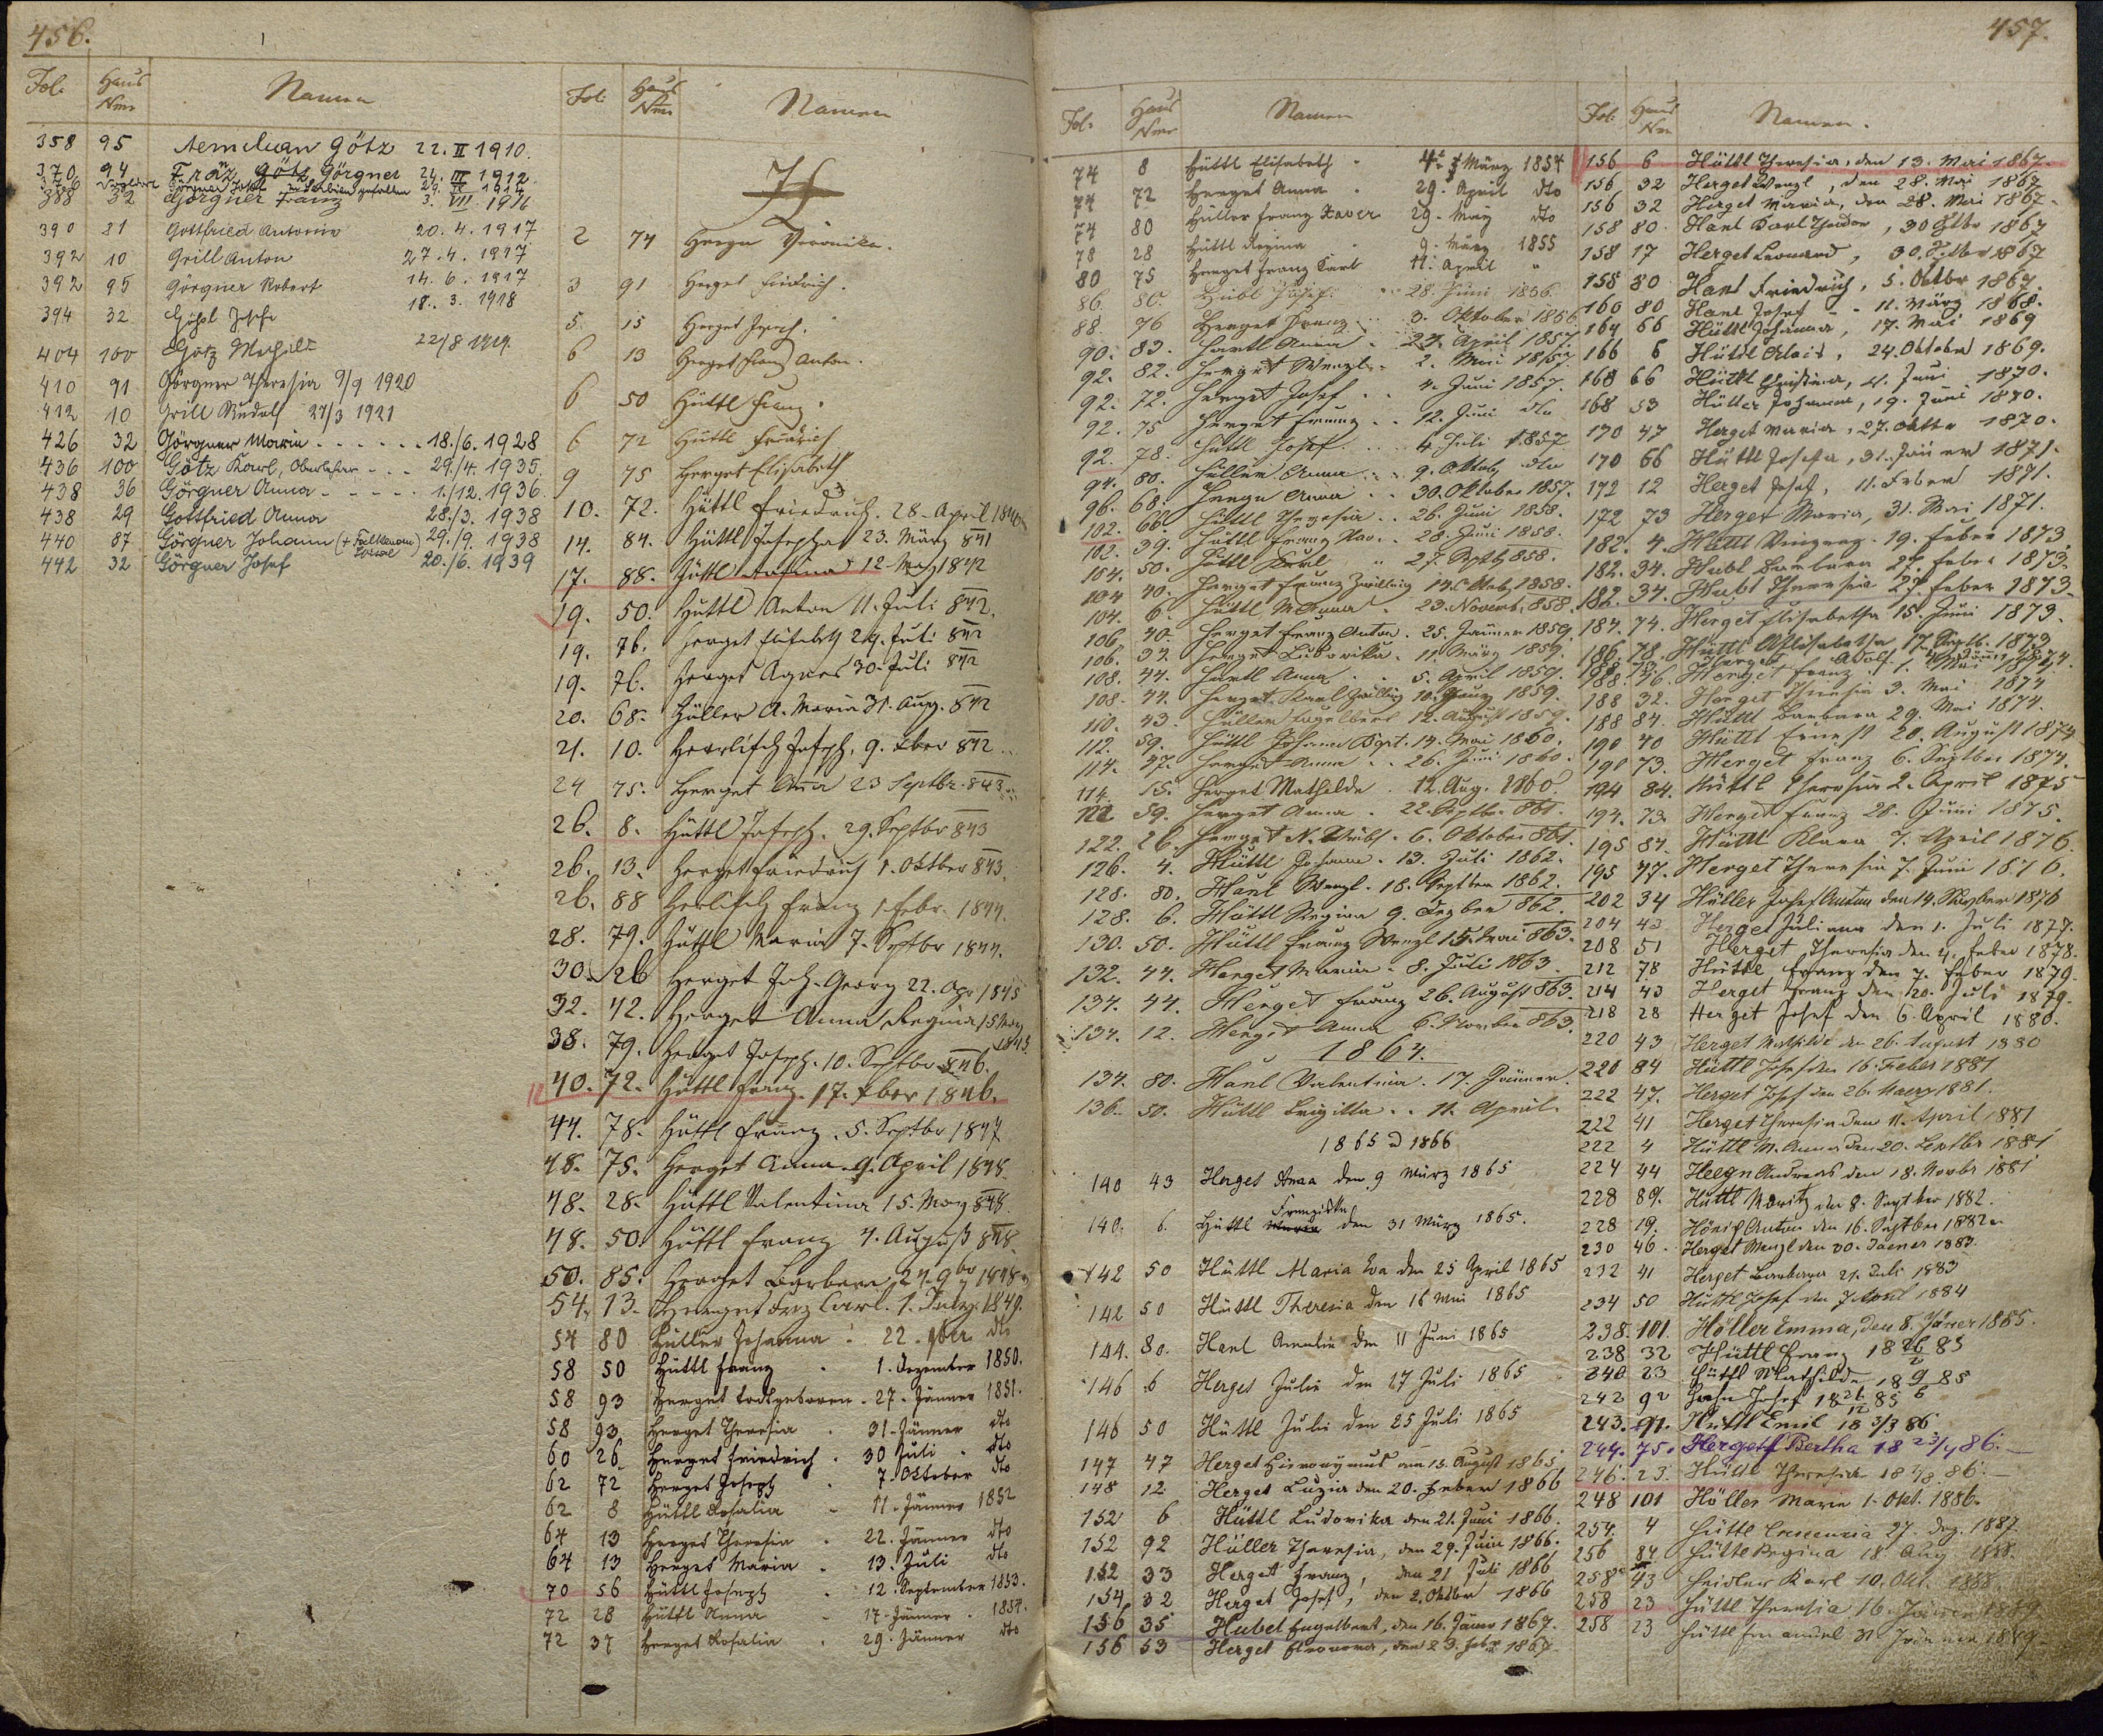 456.
Fol. Haus Nro Namen
358 95 Aemilian Götz 22. II 1910.
370 94 Franz Götz Görgner 24. III 1912
376 Görgner Josef in Serbien gefallen 29. IX 1914
388 32 Görgner Franz 3. VII. 1916
390 21 Gottfried Antonie 20. 4. 1917
392 10 Grill Anton 27. 4. 1917
392 95 Görgner Robert 14. 6. 1917
394 32 18. 3. 1918
404 100 Götz 22/8 1919
410 91 Görgner Theresia 9/9 1920
412 10 Grill Rudolf 27/3 1921
426 32 Görgner Maria 18./6. 1928
436 100 Götz Karl, Oberlehrer 29./4. 1935.
438 36 Görgner Anna 1./12. 1936.
438 29 Gottfried Anna 28./3. 1938
440 87 Görgner Johann 29./9. 1938
442 32 Görgner Josef 20./6. 1939
Fol. Haus Nro Namen
H
2 74 Heegn Veronika.
3 91 Herget Friedrich.
5 15 Herget Joseh.
6 13 Herget Franz Anton.
6 50 Hüttl Franz.
6 72 Hüttl Friedrich
9 75 Herget Elisabeth
10. 72. Hüttl Friedrich. 28. April 1840
14. 84. Hüttl Josepha 23. März 841
17. 88. Hüttl 12 May 1842
19. 50. Hüttl Anton 11. Juli 842.
19. 76. Herget Elisabeth 24. Juli 842
19. 76. Herget Agnes 30. Juli 842
20. 68. Hüller A. Maria 31. Aug. 842
21. 10. Herrlisch Joseph, 9. 8ber 842.
24 75. Herget Anna 23 Septbr. 843
26. 8. Hüttl Joseph. 29. Septbr 843
26. 13. Herget Friedrich 1. Oktber 843.
26. 88 Herlisch Franz 1. Febr. 1844.
28. 79. Hüttl Maria 7. Septbr 1844.
30. 26 Herget Joh. Georg 22. Apr 1845
32. 42. Herget Anna Regina 15 May 1845.
38. 79. Herget Joseph. 10. Septbr 846.
40. 72. Hüttl Franz. 17. 8ber 1846.
44. 78. Hüttl Franz. 5. Septbr 1847
48. 75. Herget Anna. 9. April 1848.
48. 28. Hüttl Valentina 15. May 848.
48. 50. Hüttl Franz 4. August 848.
50. 85. Herget Barbara 27. 9br 1848.
54. 13. Herget Frz Carl. 1. 1849.
54 80 Hüller Johanna 22. dto
58 50 Hüttl Franz 1. Dezember 1850.
58 93 Herget todtgeboren. 27. Jänner 1851.
58 93 Herget Theresia 31. Jänner dto
60 26 Herget Friedrich 30 Juli dto
62 72 Herget Joseph 7. Oktober dto
62 8 Hüttl Rosalia 11. Jänner 1852
64 13 Herget Theresia 22. Jänner dto
64 13 Herget Maria 13. Juli dto
70 56 Hüttl Joseph 12. September 1853.
72 28 Hüttl Anna 17. Jänner 1854.
72 37 Herget Rosalia 29. Jänner dto
457.
Fol. Haus Nro Namen
74 8 Hüttl Elisabeth März 1854
74 72 Herget Anna 29. April dto
74 80 Hüller Franz Xaver 29. May dto
78 28 Hüttl Regina 9. März 1855
80 75 Herget Franz Carl 11. April "
86. 80. Josef. 28. Juni 1856.
88. 76 Herget Franz 3. Oktober 1856
90. 83. Anna 27. April 1857.
92. 82. Herget Wenzl 2. Mai 1857.
92. 72. Herget Josef 4. Juni 1857.
92. 75 Herget Franz 12. Juni dto
92. 78. Hüttl Josef 4. Juli 1857
94. 80. Hüller Anna 9. Oktob. dto
96. 68. Heegn Anna 30. Oktober 1857.
102. 66. Hüttl Theresia 26. Juni 1858.
102. 39. Hüttl Franz Xav. 28. Juni 1858.
104. 50. Hüttl Karl 27. Septb 858.
104 40. Herget Franz Zwilling 14. Oktob. 1858.
104. 6. Hüttl M. Anna 23. Novemb. 858.
106. 40. Herget Franz Anton. 25. Jänner 1859.
106. 37. Herget Ludovika. 11. März 1859.
108. 44. Anna 5. April 1859.
108. 44. Herget Karl Zwilling 10. 1859.
110. 43. Hüller Engelbert 12. August 1859.
112. 59. Hüttl Johann Bapt. 14. Mai 1860.
114. 47. Herget Anna 26. Juni 1860.
114. 15. Herget Mathilde 12. Aug. 1860.
59. Herget Anna 22. Septber 861.
122. 26. Herget 6. Oktober 861.
126. 4. Hüttl Johann. 13. Juli 1862.
128. 80. Hanl Wenzl. 18. Septber 1862.
128. 6. Hüttl Regina 9. Dezber 862.
130. 50. Hüttl Franz Wenzl 15. Mai 863.
132. 44. Herget Maria. 8. Juli 1863.
134. 44. Herget Franz 26. August 863.
134. 12. Herget Anna 6. Novber 863.
1864.
134. 80. Hanl Valentina. 17. Jänner.
136. 50. Hüttl Brigitta 11. April.
1865 1866
140 43 Herget Anna den 9 März 1865
140. 6. Hüttl Franziska den 31 März 1865.
142 50 Hüttl Maria Eva den 25 April 1865
142 50 Hüttl Theresia den 16 Mai 1865
144. 80. Hanl Amalie den 11 Juni 1865
146 6 Herget Julie den 17 Juli 1865
146 50 Hüttl Julie den 25 Juli 1865
147 47 Herget Hieronymus am 15. August 1865
148 12 Herget Luzia den 20. Feber 1866
152 6 Hüttl Ludovika den 21. Juni 1866.
152 92 Hüller Theresia, den 29. Juni 1866.
152 33 Herget Franz, den 21 Juli 1866
154 32 Herget Josef, den 2. Oktbr 1866
156 35 Hubel Engelbert, den 16. Jäner 1867.
156 53 Herget Eleonora, den 23. Febr 1867.
Fol. Haus Nro Namen.
156 6 Hüttl Theresia, den 13. Mai 1867.
156 32 Herget Wenzl, den 28. Mai 1867
156 32 Herget Maria, den 28. Mai 1867.
158 80. Hanl Karl Theodor, 30 1867
158 17 Herget Leonard, 30. 1867
158 80 Hanl Friedrich, 5. Oktbr 1867.
160 80 Hanl Josef 11. März 1868.
164 66 Hüttl Johanna, 17. Mai 1869
166 6 Hüttl Alois, 24. Oktober 1869.
168 66 Hüttl Christina, 4. Juni 1870.
168 53 Hüller Johanna, 19. Juni 1870.
170 47 Herget Maria, 27. Oktbr 1870.
170 66 Hüttl Josefa, 31. Jäner 1871.
172 12 Herget Josef, 11. Feber 1871.
172 73 Herget Maria, 31. Mai 1871.
182. 4. Hüttl Vinzenz. 19. Feber 1873.
182. 34. Hubl Barbara 27. Feber 1873.
182. 34. Hubl Theresia 27. Feber 1873.
184. 74. Herget Elisabetha 15. Juni 1873.
186. 78. Hüttl 17. Septb. 1873
Herget Adolf. 1874.
188. 76. Herget Franz 1. Mai 1874.
188 32. Herget Theresia 3. Mai 1874
188 84. Hüttl Barbara 29. Mai 1874.
190 40 Hüttl Ernest 20. August 1874
190 73. Herget Franz 6. Septber 1874.
194 84. Hüttl Theresia 2. April 1875
194. 73. Herget Franz 28. Juni 1875.
195 84. Hüttl Klara 7. April 1876.
195 77. Herget Theresia 7. Juni 1876.
202 34 Hüller Josef Anton den 14. 1876
204 43 Herget Juliana den 1. Juli 1877.
208 51 Herget Theresia den 4. Feber 1878.
212 78 Hüttl Franz den 7. Feber 1879.
214 43 Herget Franz den 20. Juli 1879.
218 28 Herget Josef den 6. April 1880.
220 43 Herget Mathilde den 26. August 1880
220 84 Hüttl Josef den 16. Feber 1881
222 47. Herget Josef den 26. März 1881.
222 41 Herget Theresia den 11. April 1881
222 4 Hüttl M. Anna den 20. Septbr 1881
224 44 Heegn Andreas den 18. Novbr 1881
228 89. Hüttl Moritz den 8. Septber 1882.
228 19. Hönig Anton den 16. Septber 1882
230 46. Herget Wenzl den 30. Jaener 1883.
232 41 Herget Barbara 21. Juli 1883
234 50 Hüttl Josef den 7 April 1884
238. 101. Höller Emma, den 8. Jäner 1885.
238 32 Hüttl Franz 18 85
240 23 Hüttl Mathilde 18 85
242 92 Hahn Josef 18 85
243. 97. Hüttl Emil 18 3/3 86
244. 75. Hergett Bertha 18 23/4 86.
246. 23. Hüttl Theresia 18 86.
248 101 Höller Marie 1. Okt. 1886.
254. 4 Hüttl Crescenzia 27. Dez. 1887
256 84 Hüttl Regina 18 Aug 1888.
258 43 Heidler Karl 10. Okt. 1888.
258 23 Hüttl Theresia 16. Jänner 1889
258 23 Hüttl Emanuel 31. Jänner 1889.